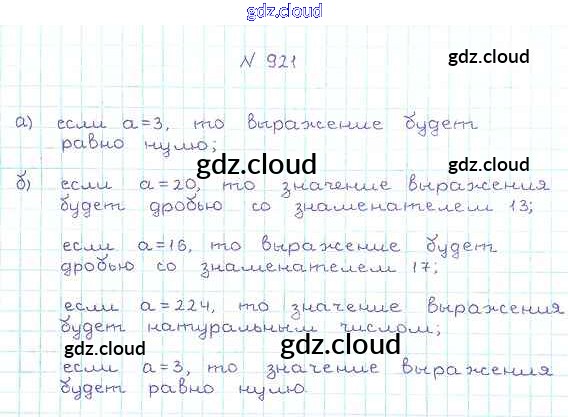 gdz.cloud
N 921
gdz.cloud
gdz.cloud
а) если а=3, то выражение будет
равно нулю;
gdz.cloud
gdz.cloud
б) если а=20, то значение выражения
будет дробью со знаменателем 13;
если а=16, то выражение будет
дробью со знаменателем 17;
если а=224, то значение выражения
будет натуральным числом;
gdz.cloud
gdz.cloud
если а=3, то значение выражения
будет равно нулю.